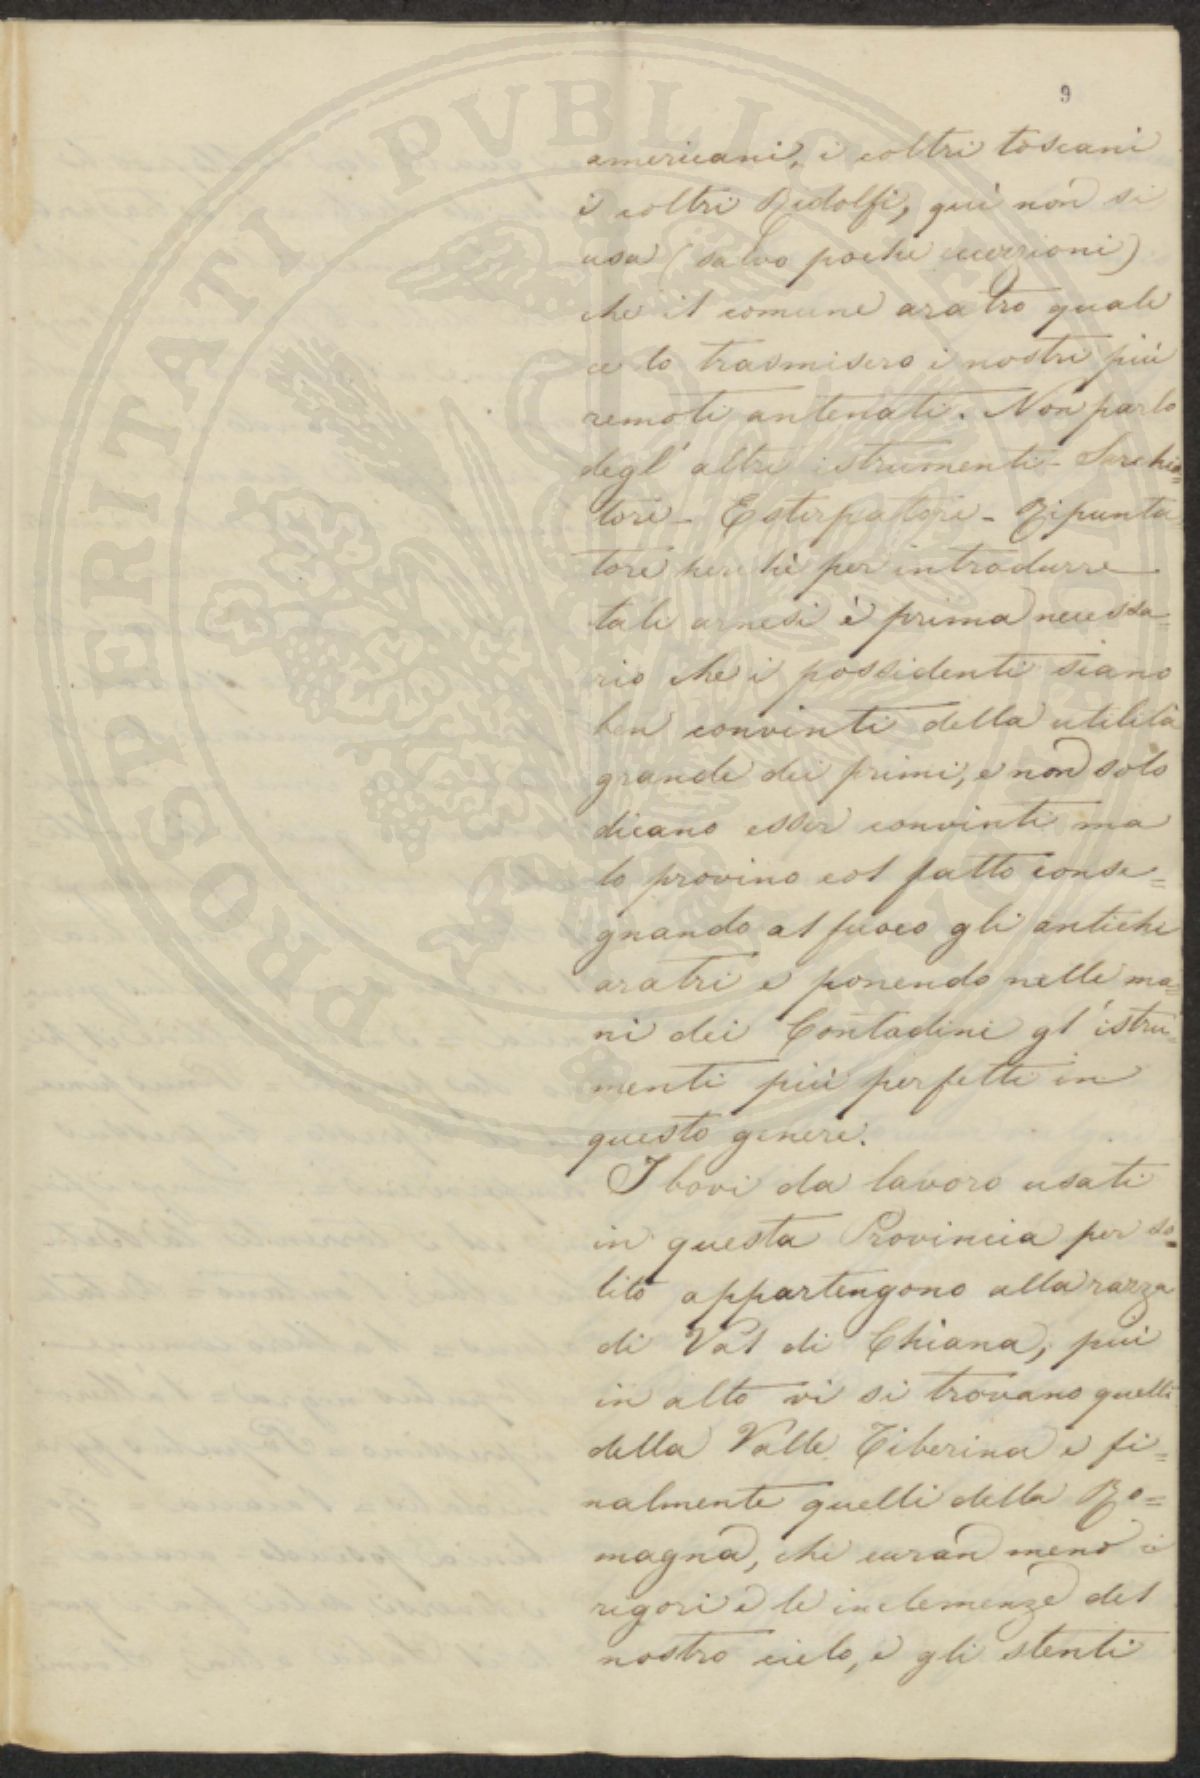 9
americani, i coltri toscani
i coltri Ridolfi, quì non si
usa (salvo poche eccezzioni)
che il comune aratro quale
ce lo trasmisero i nostri più
remoti antenati. Non parlo
degl' altri istrumenti - Sarchia=
tori - Esterpatori - Ripunta
tori perchè per introdurre
tali arnesi è prima necessa=
rio che i possidenti siano
ben convinti della utilità
grande dei primi, e non solo
dicano esser convinti ma
lo provino col fatto conse=
gnando al fuoco gli antichi
aratri e ponendo nelle ma=
ni dei Contadini gl' istru=
menti più perfetti in
questo genere.
I bovi da lavoro usati
in questa Provincia per so=
lito appartengono alla razza
di Val di Chiana, più
in alto vi si trovano quelli
della Valle Tiberina e fi=
nalmente quelli della Ro=
magna, che curan meno i
rigori e le inclemenze del
nostro cielo, e gli stenti
PROSPERITATI PVBLICAE